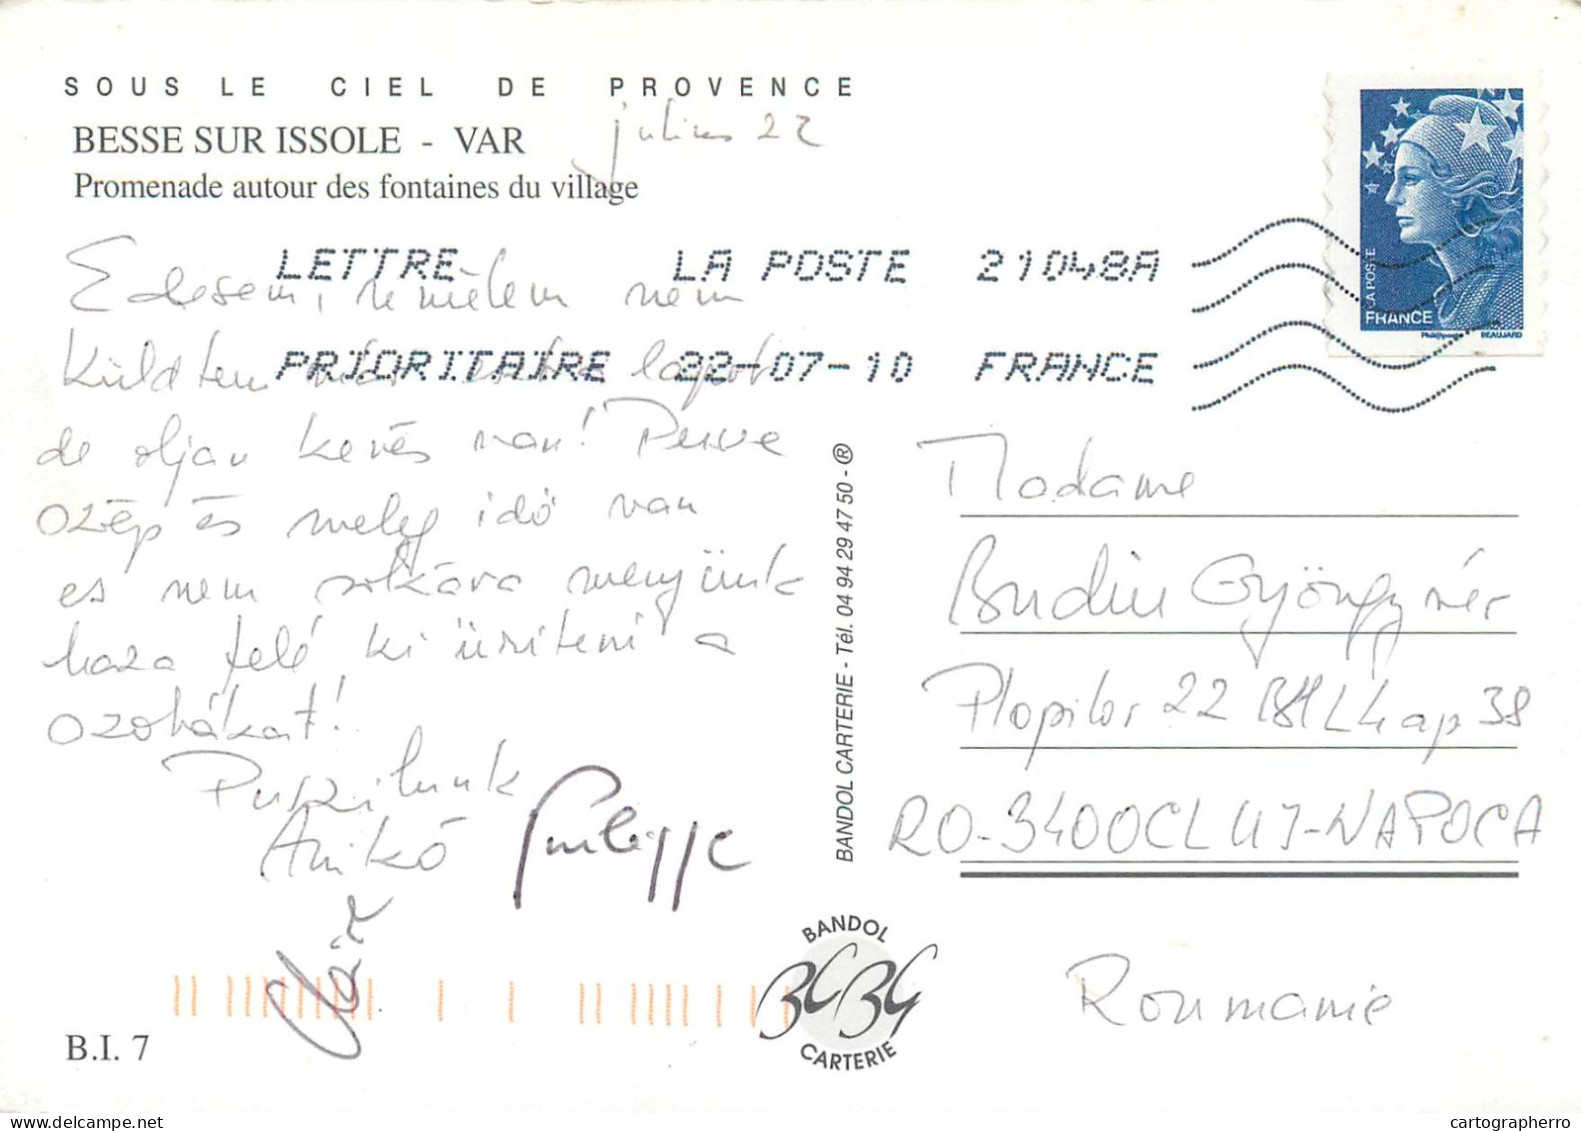 SOUS LE CIEL DE PROVENCE
BESSE SUR ISSOLE - VAR
Promenade autour des fontaines du village
julius 22
LETTRE LA POSTE 21048A
PRIORITAIRE 22-07-10 FRANCE
LA POSTE
FRANCE
BEAUJARD
Edesem, remélem nem
Küldtem lapot
de oljan kevés van! Persze
szép és meleg idö van
es nem sokára menjünk
haza felé ki üriteni a
szobákat!
Puszilunk
Anikó
Philippe
Claire
B.I. 7
BANDOL CARTERIE - Tél. 04 94 29 47 50 - ®
BANDOL
CARTERIE
Madame
Budiu Gyöngyvér
Plopilor 22 ap 38
RO-3400 CLUJ-NAPOCA
Roumanie
cartographerro